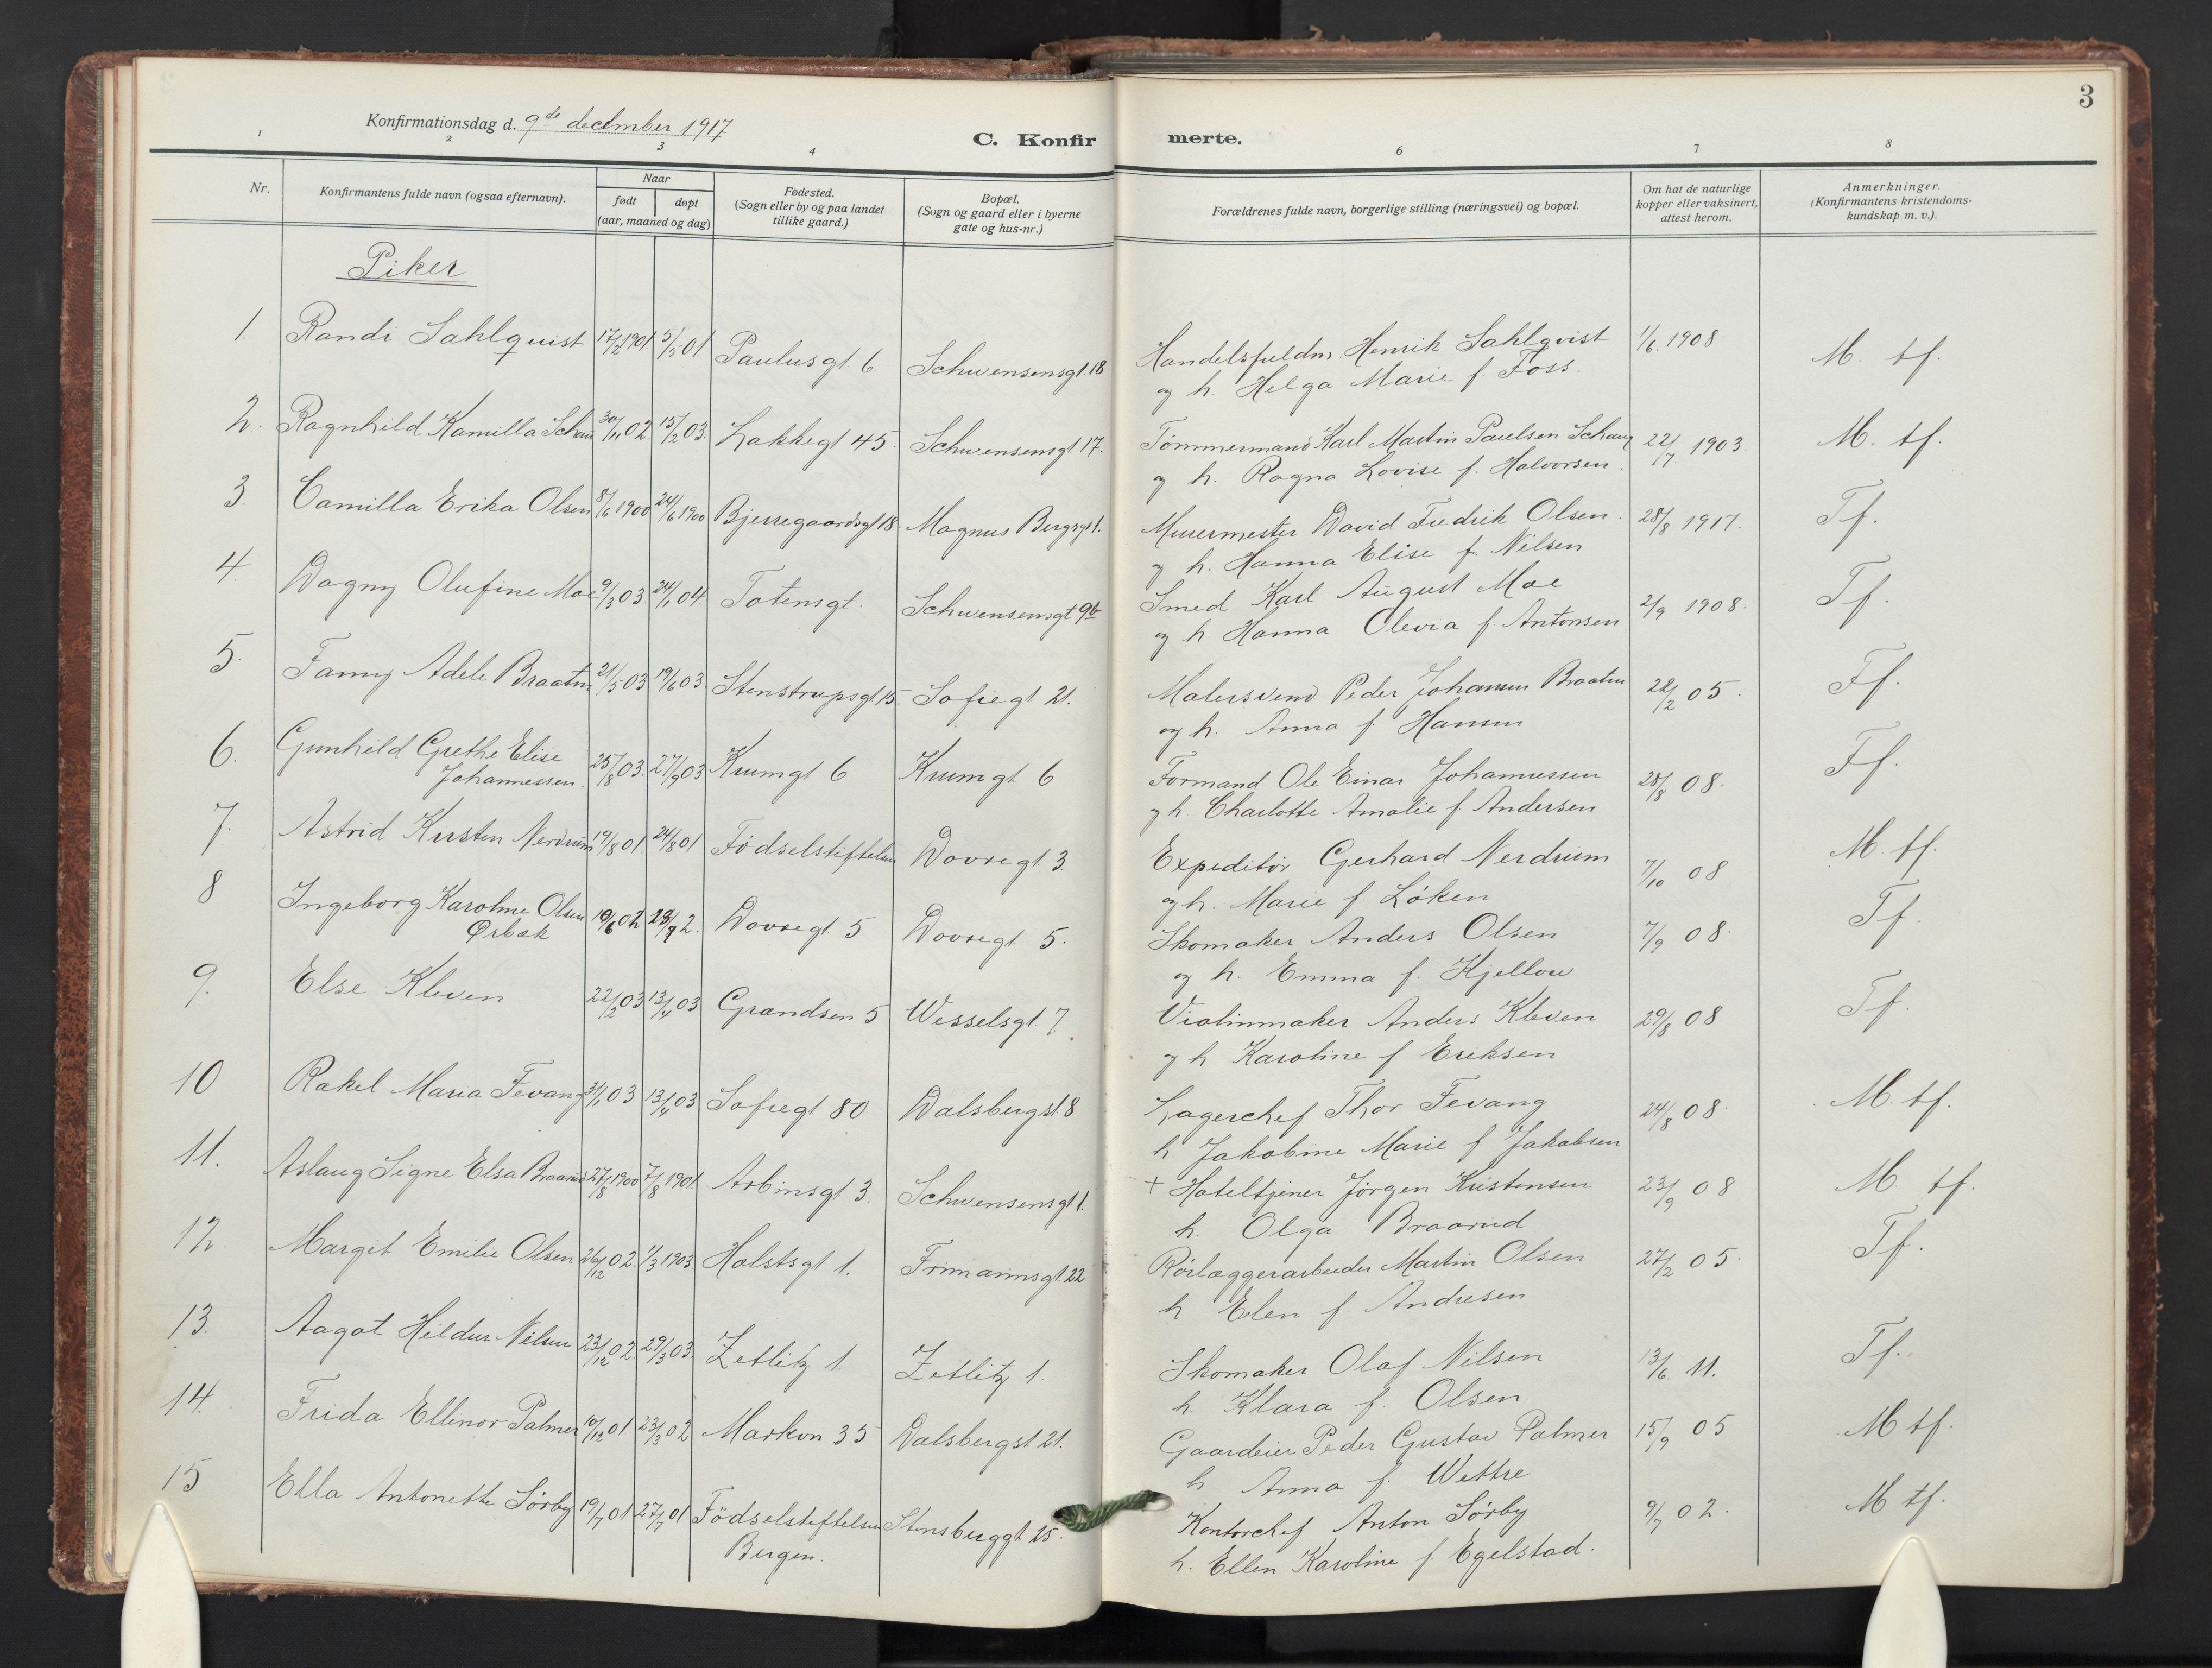 3
Konfirmationsdag d. 9de december 1917
C. Konfirmerte.
1 2 3 4 6 7 8
Nr.
Konfirmantens fulde navn (ogsaa efternavn).
Naar
født døpt
(aar, maaned og dag)
Fødested.
(Sogn eller by og paa landet
tillike gaard.)
Bopæl.
(Sogn og gaard eller i byerne
gate og hus-nr.)
Forældrenes fulde navn, borgerlige stilling (næringsvei) og bopæl.
Om hat de naturlige
kopper eller vaksinert,
attest herom.
Anmerkninger.
(Konfirmantens kristendoms-
kundskap m. v.).
Piker
1. Randi Sahlquist 17/2 1901 5/5 01 Paulusgt 6 Schwensensgt. 18 Handelsfuldm. Henrik Sahlqvist 1/6. 1908 M. tf.
og h Helga Marie f. Foss.
2. Ragnhild Kamilla Schau 30/11 02. 15/2 03. Lakkegt 45 Schwensensgt 17. Tømmermand Karl Martin Paulsen Schau 22/7 1903. M. tf.
og h. Ragna Lovise f. Halvorsen.
3. Camilla Erika Olsen 8/6 1900 24/6 1900 Bjerregaardsgt 18 Magnus Bergsgt 1. Murermester David Fredrik Olsen. 28/8 1917. Tf.
og h. Hanna Elise f. Nilsen
4. Dagny Olufine Moe 9/3 03. 24/1 04 Totensgt. Schwensensgt 9b Smed Karl August Moe 2/9 1908. Tf.
og h. Hanna Olevia f. Antonsen
5. Fanny Adele Braaten 21/5 03 19/6 03. Stenstrupsgt 15. Sofiegt 21. Malersvend Peder Johansen Braaten 28/2 05. Tf.
og h. Anna f Hansen
6. Gunhild Grethe Elise
Johannessen. 25/8 03. 27/9 03 Krumgt 6 Krumgt 6 Formand Ole Einar Johannessen 28/8 08. Tf.
og h Charlotte Amalie f Andersen
7. Astrid Kirsten Nerdrum 19/8 01 24/8 01 Fødselstiftelsen Dovregt. 3. Expeditør Gerhard Nerdrum 7/10 08 M. tf.
og h. Marie f. Løken
8 Ingeborg Karoline Olsen
Ørbæk 10/6 02 29/7 2. Dovregt. 5 Dovregt 5. Skomaker Anders Olsen 7/9 08. Tf.
og h. Emma f. Kjellow
9. Else Kleven 22/2 03 13/4 03 Grændsen 5 Wesselsgt. 7. Violinmaker Anders Kleven 29/8 08 Tf.
og h. Karoline f Eriksen
10 Rakel Maria Fevang 31/1 03 13/4 03 Sofiegt 80 Dalsbergst 8 Lagerchef Thor Fevang 24/8 08. M. tf.
h Jakobine Marie f Jakobsen
11. Aslaug Signe Elsa Braarud 27/8 1900 7/8 1901. Arbinsgt 3. Schwensensgt 1. + Hoteltjener Jørgen Kristensen 23/9 08 M. tf.
h. Olga Braarud
12. Margit Emilie Olsen 26/12 02. 1/3 1903 Holstsgt 1. Frimannsgt 22 Rørlæggerarbeider Martin Olsen 27/2 05. Tf.
h Elen f Andresen
13. Aagot Hildur Nilsen 23/12 02 29/3 03. Zetlitz 1. Zetlitz 1. Skomaker Olaf Nilsen 13/6. 11. Tf.
h. Klara f. Olsen
14. Frida Ellenor Palmer 10/12 01 23/3 02 Markvn 35 Dalsbergst 21. Gaardeier Peder Gustav Palmer 15/9 05 M tf.
h. Anna f. Wettre
15 Ella Antonette Sørby 19/7 01 27/7 01 Fødselsteftelsen Stensberggt 25. Kontorchef Anton Sørby 9/7 02. M tf.
Bergen. h. Ellen Karoline f Egelstad.